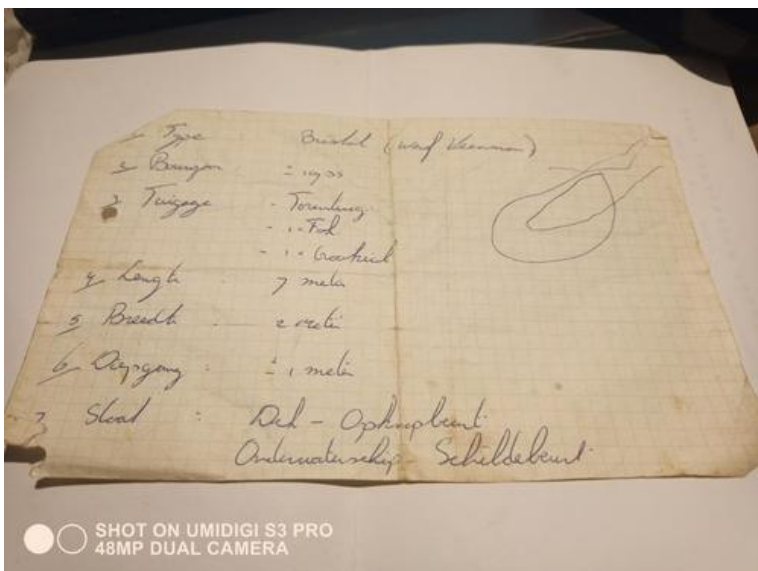 1 Type Bristol (werf Veenman)
2 Bouwjaar ±
3 Tuigage -
- 1 - Fok
- 1 -
4 Length 7 meter
5 Breedte 2 meter
6 Diepgang : ± 1 meter
7 Staat : Dek - Opknapbeurt
Onderwaterschip - Schilderbeurt
SHOT ON UMIDIGI S3 PRO
48MP DUAL CAMERA